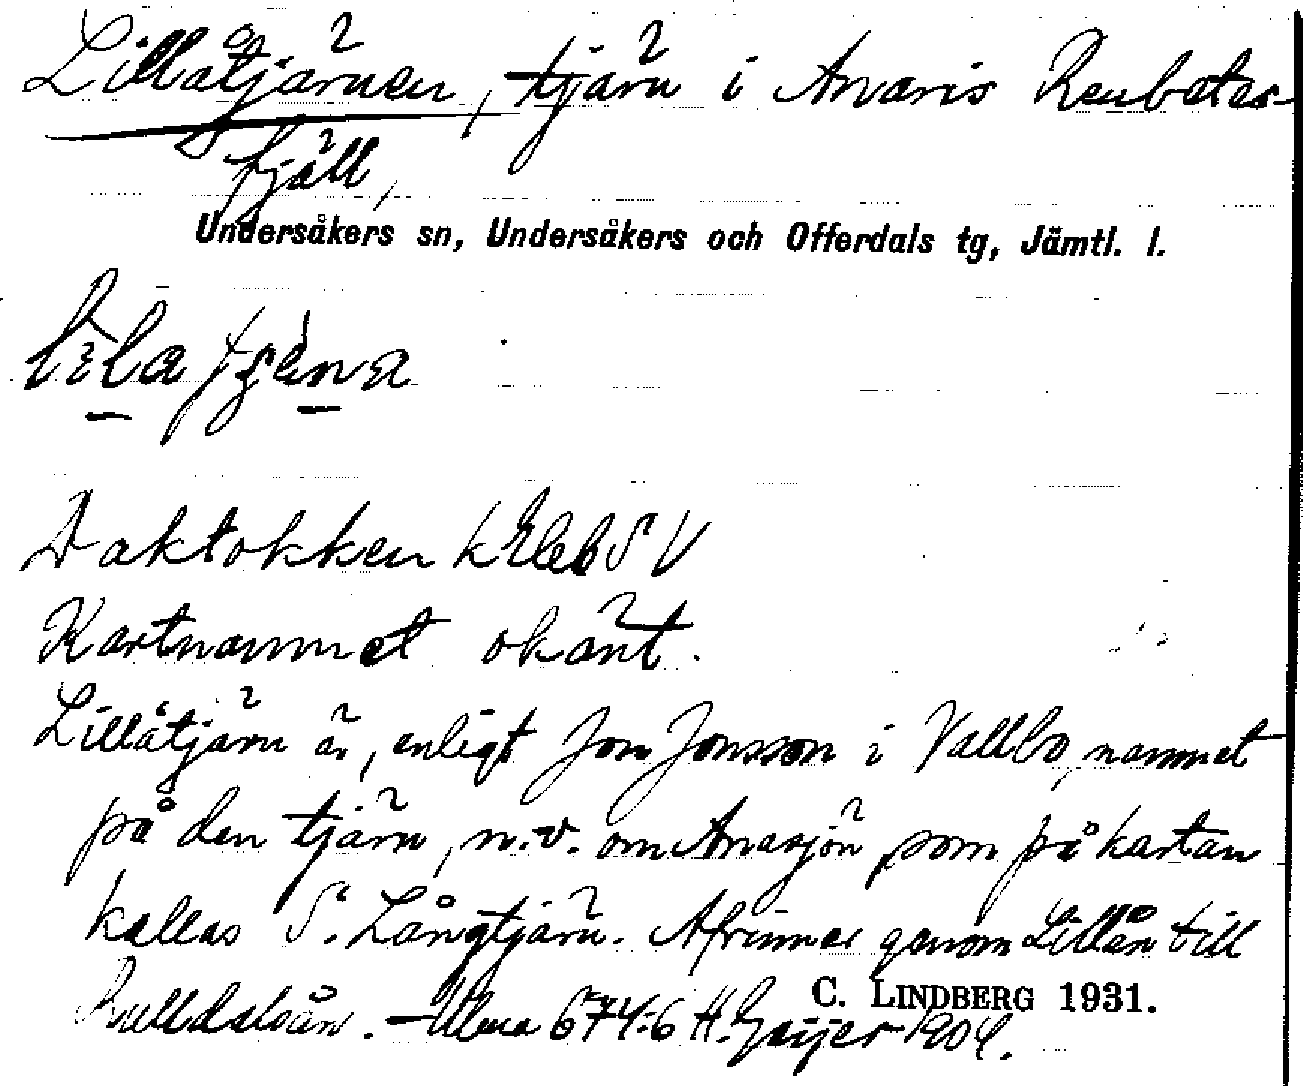 Lillåtjärnen, tjärn i Anaris Renbetes-
fjäll,
Undersåkers sn, Undersåkers och Offerdals tg, Jämtl. l.
Daktokken k Ekeb S V
Kartnamnet okänt.
Lillåtjärn är, enligt Jon Jonsson i Vallbo, namnet
på den tjärn, n.v. om Anasjön, som på kartan
kallas S. Långtjärn. Afrinner genom Lillån till
C. LINDBERG 1931.
Bulldalsån. — Ulma 674:6 H. Geijer 1904.